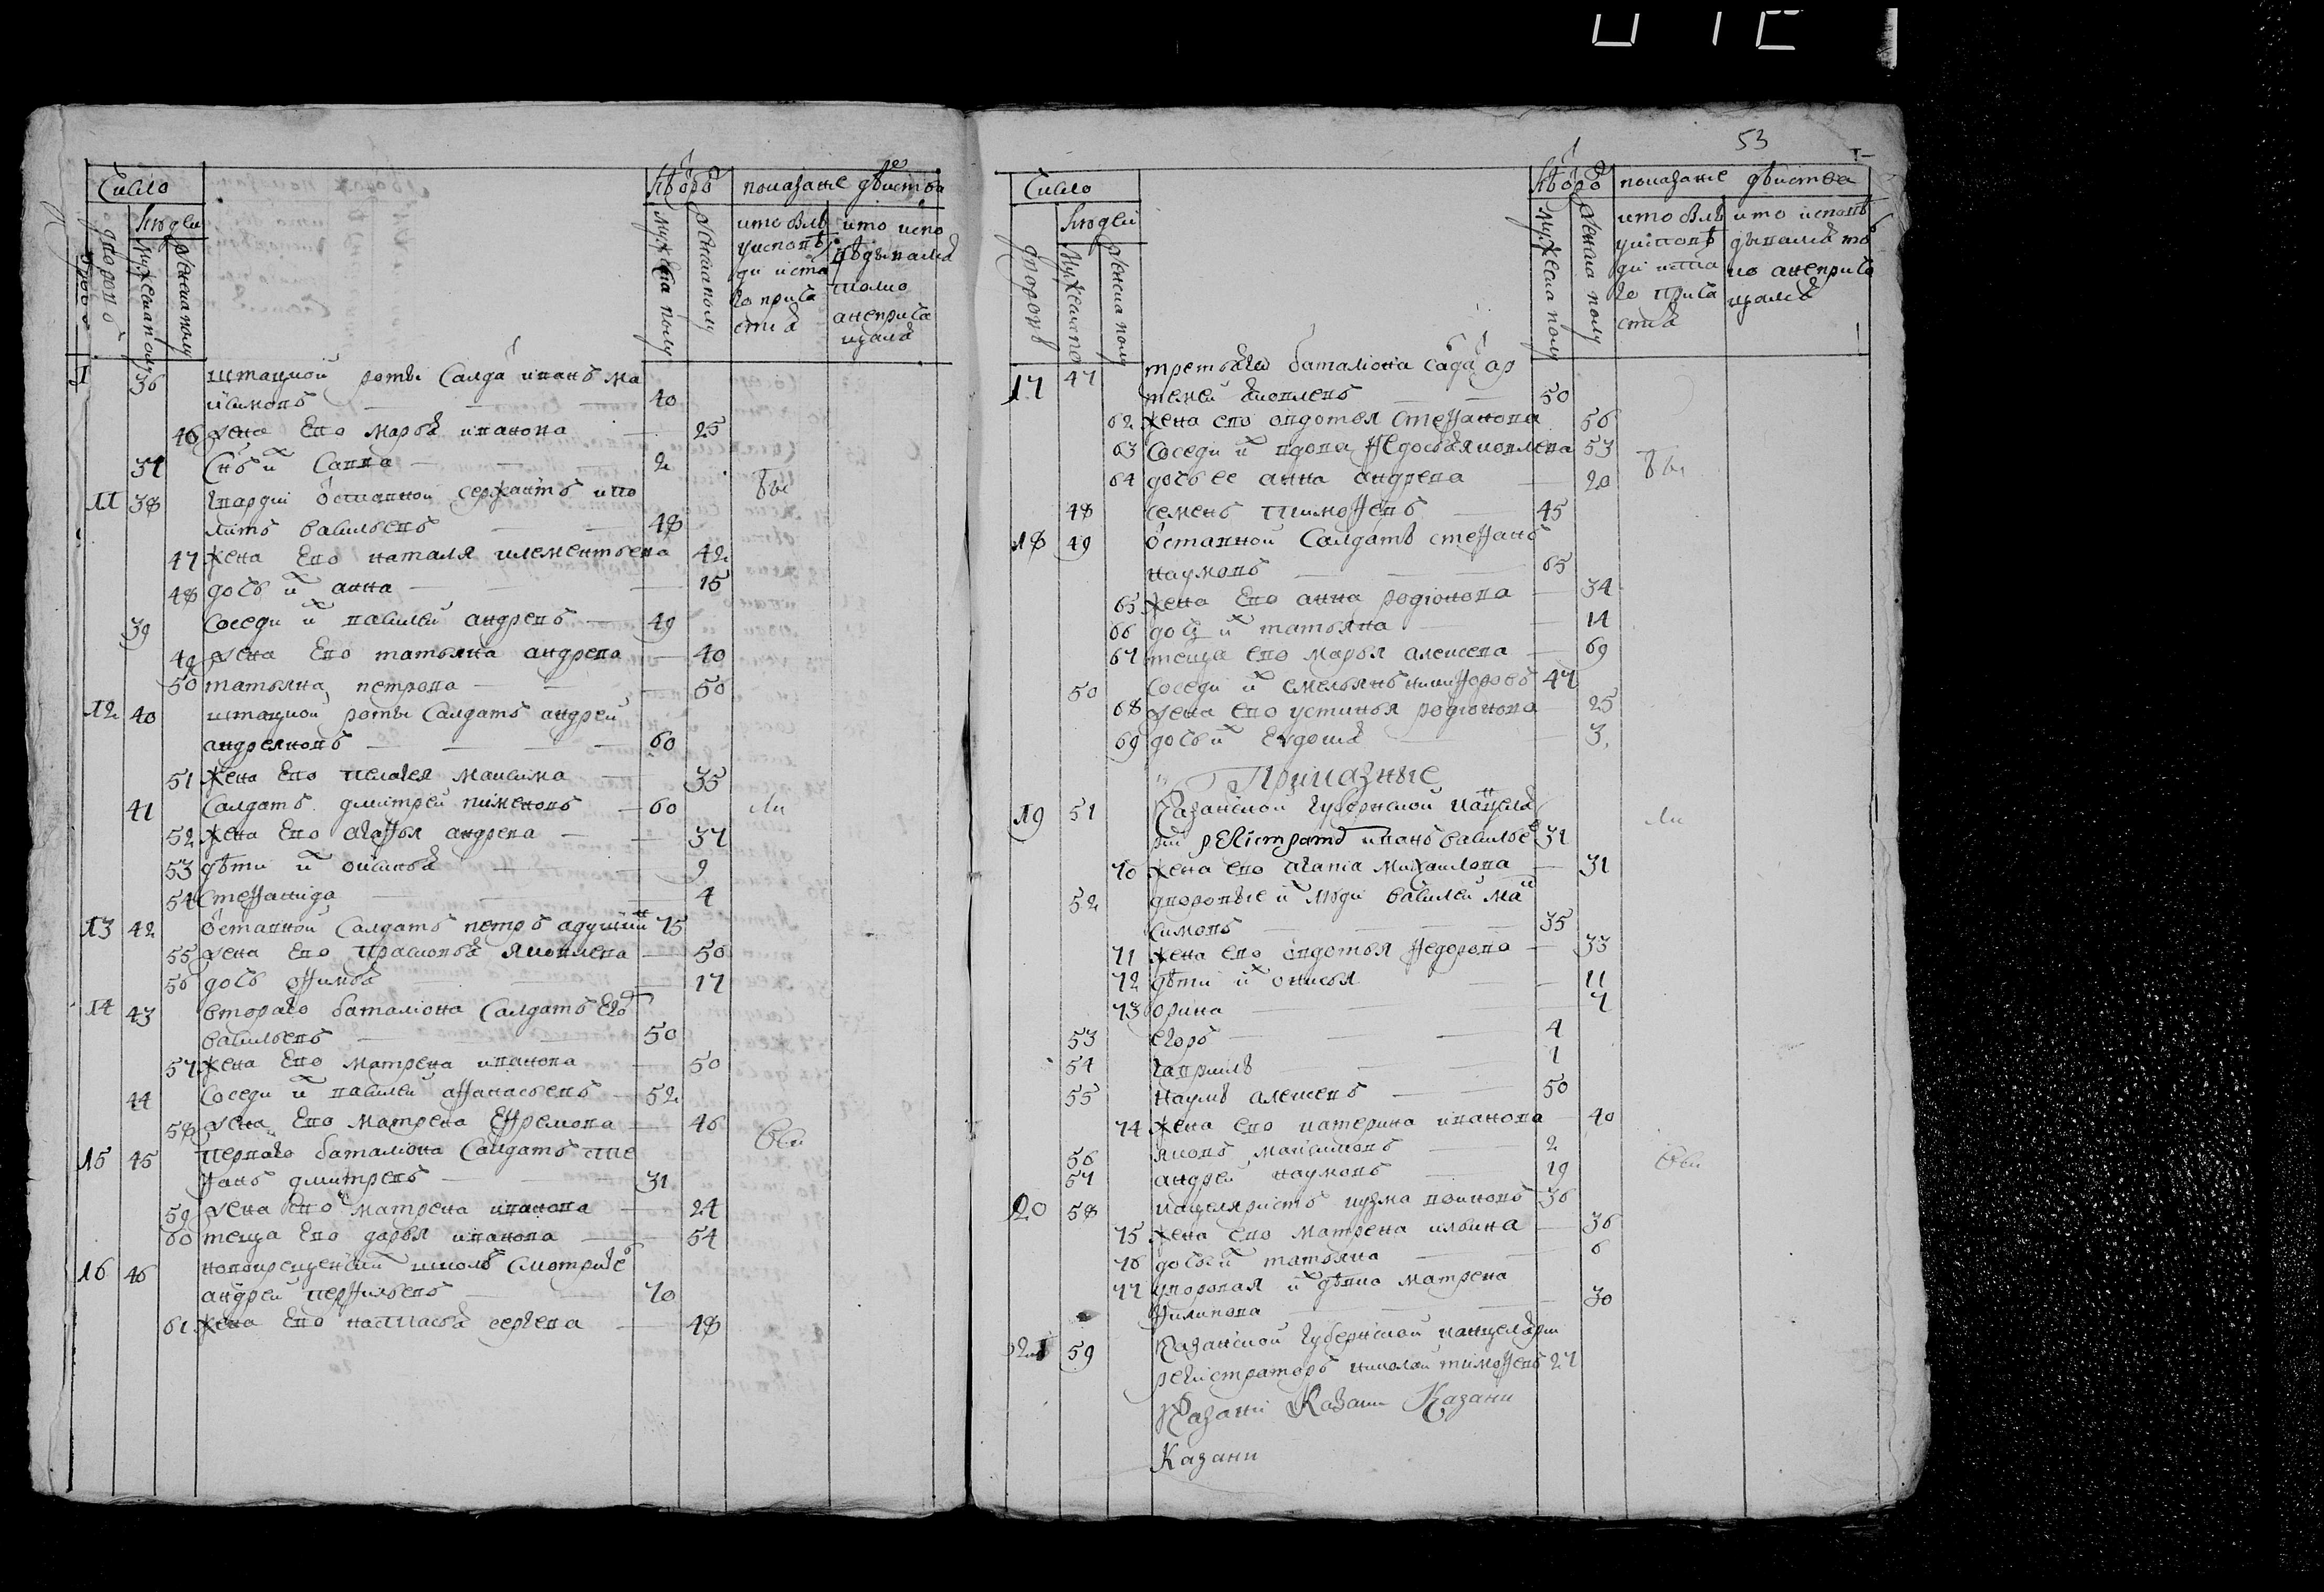 53
Число
людей
дворовъ
мужеска полу
женска полу
показанїе дѣиства
мужеска полу
женска полу
кто были
у исповѣ
ди и ста
го прича
стия
кто испо
вѣдывался
толко
а неприча
щался
36 штацкой роты Салда иванъ ма
ксимовъ 40
46 жена Ево марья иванова 25
37 Снъ их Савва 2
11 38 гвардїи ѡставной сержантъ ипо
литъ васильевъ 48
47 жена Ево наталя климентьева 42
48 дочь их анна 15
39 Соседи их василей андревъ 49
49 жена Ево татьяна андрева 40
50 татьяна петрова 50
12 40 штацкой роты Салдатъ андрей
андреяновъ 60
51 жена Ево пелагея максима 35
41 Салдатъ дмитрей пименовъ 60
52 жена Ево агафья андрева 37
53 дѣти их оксинья 9
54 Стефанида 4
13 42 ѡставной Салдатъ петръ 75
55 жена Ево прасковья яковлева 50
56 дочь афимья 17
14 43 втораго баталиона Салдатъ Его
васильевъ 50
57 жена Ево матрена иванова 50
44 Соседи их василей афанасьевъ 52
58 жена Ево матрена Ефремова 46
15 45 перваго баталиона Салдатъ сте
фанъ дмитревъ 31
59 жена ево матрена иванова 24
60 теща Ево дарья иванова 54
16 46 новокрещенских школъ Смотрите
андрей перфильевъ 70
61 жена Ево настасья сергева 48
Число
людей
дворовъ
мужеска по
женска полу
показанїе дѣиства
мужеска полу
женска полу
кто были
у исповѣ
ди и ста
го прича
стия
кто исповѣ
дывался то
ко а неприча
щался
17 47 третьяго баталиона сада ар
темей яковлевъ 50
62 жена ево авдотья Стефанова 56
63 Соседи их вдова федосья яковлева 53
64 дочь ее анна андрева 20
48 семенъ тимофевъ 45
18 49 ѡставной Салдатъ стефанъ
наумовъ 65
65 жена Ево анна родїонова 34
66 дочь их татьяна 14
67 теща ево марья алексева 69
50 Соседи их емельянъ никифоровъ 47
68 жена ево устинья родїонова 25
69 дочь их Евдокия 3
Приказные
19 51 Казанской губернской канцеля
рии регистрато иванъ василье 31
70 жена ево агапїа михаилова 31
52 дворовые их люди василей мак
симовъ 35
71 жена ево авдотья федорова 33
72 дѣти их онисья 11
73 орина 7
53 егоръ 4
54 гаврила 1
55 наумъ алексевъ 50
74 жена ево катерина иванова 40
56 яковъ максимовъ 2
57 андрей наумовъ 19
20 58 кацеляристъ кузма 36
75 жена ево матрена ильина 36
76 дочь их татьяна 6
77 дворовая их дѣвка матрена
филипова 30
21 59 Казанской губернской канцелярии
регистраторъ николай тимофевъ 27
Казани Казани Казани
Казани